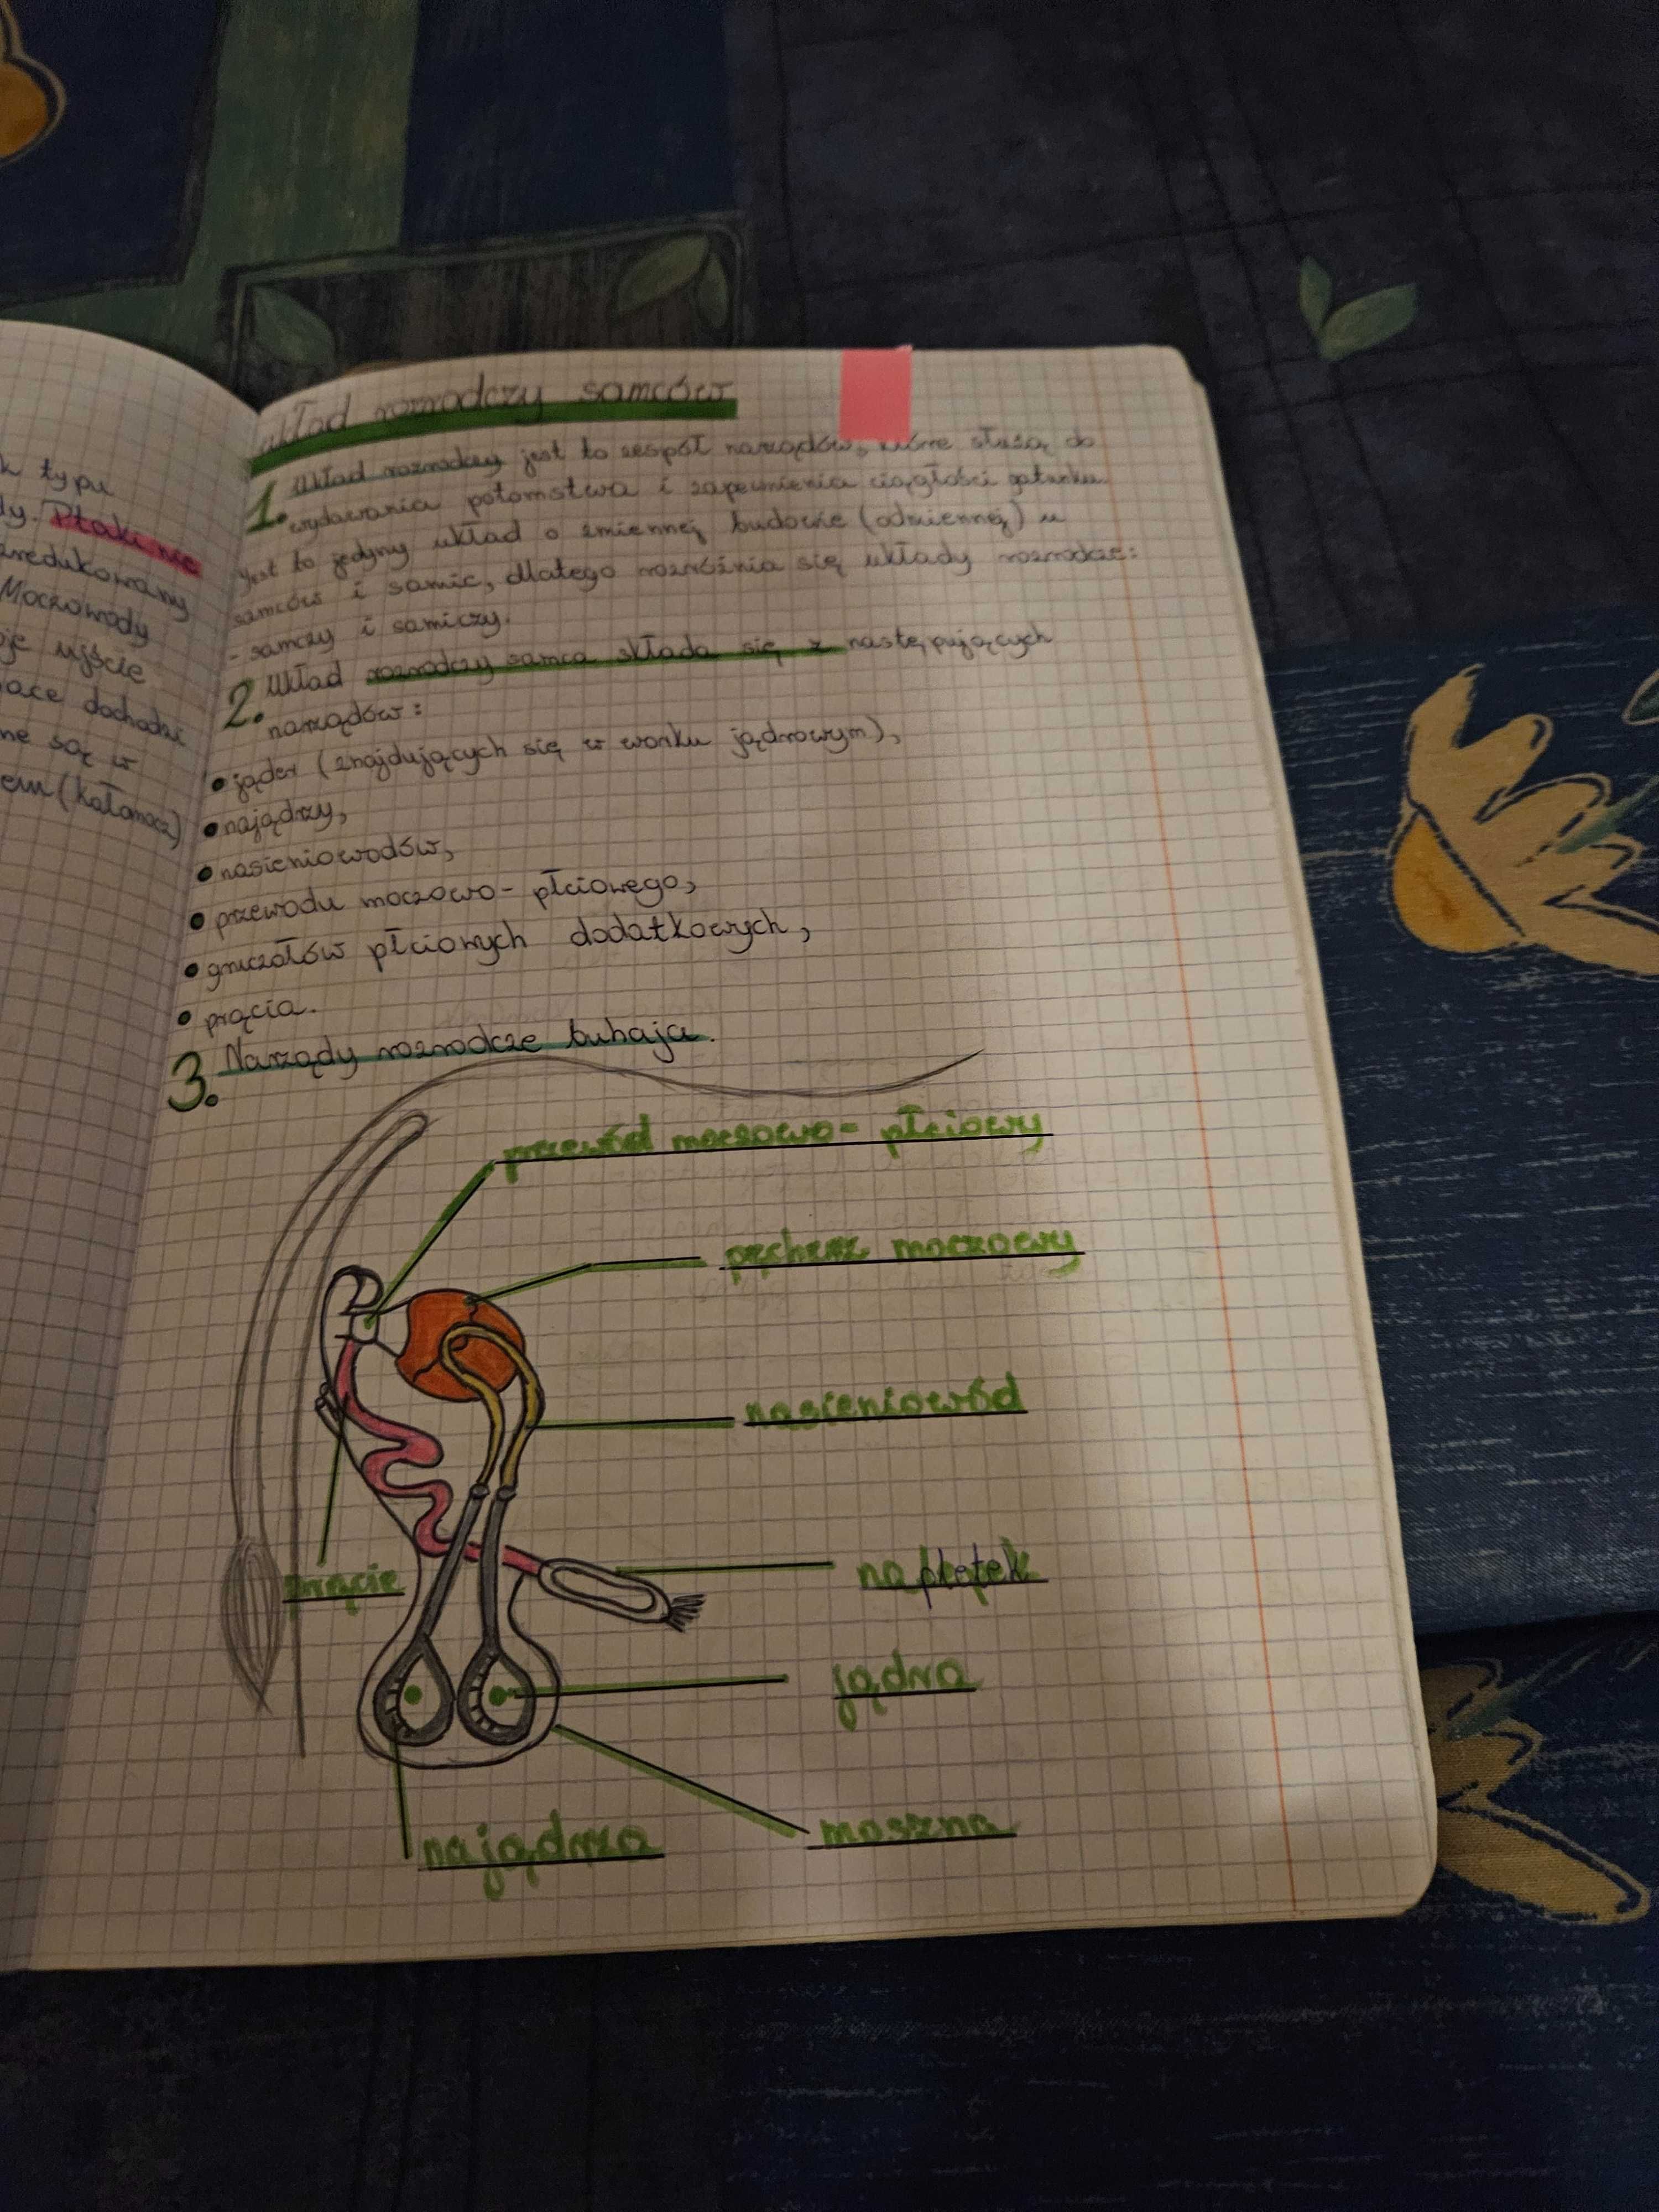 k typu
dy. Ptaki nie
zredukowany
Moczowody
oje ujście
dochodzi
ne są w
em (kałomocz)
układ rozrodczy samców
1. Układ rozrodczy jest to zespół narządów, które służą do
wydawania potomstwa i zapewnienia ciągłości gatunku.
Jest to jedyny układ o zmiennej budowie (odmiennej) u
samców i samic, dlatego rozróżnia się układy rozrodcze:
- samczy i samiczy.
2. Układ rozrodczy samca składa się z następujących
narządów:
• jąder (znajdujących się w worku jądrowym),
• najądrzy,
• nasieniowodów,
• przewodu moczowo-płciowego,
• gruczołów płciowych dodatkowych,
• prącia.
3. Narządy rozrodcze buhaja.
przewód moczowo-płciowy
pęcherz moczowy
nasieniowód
prącie
napletek
jądro
moszna
najądrza